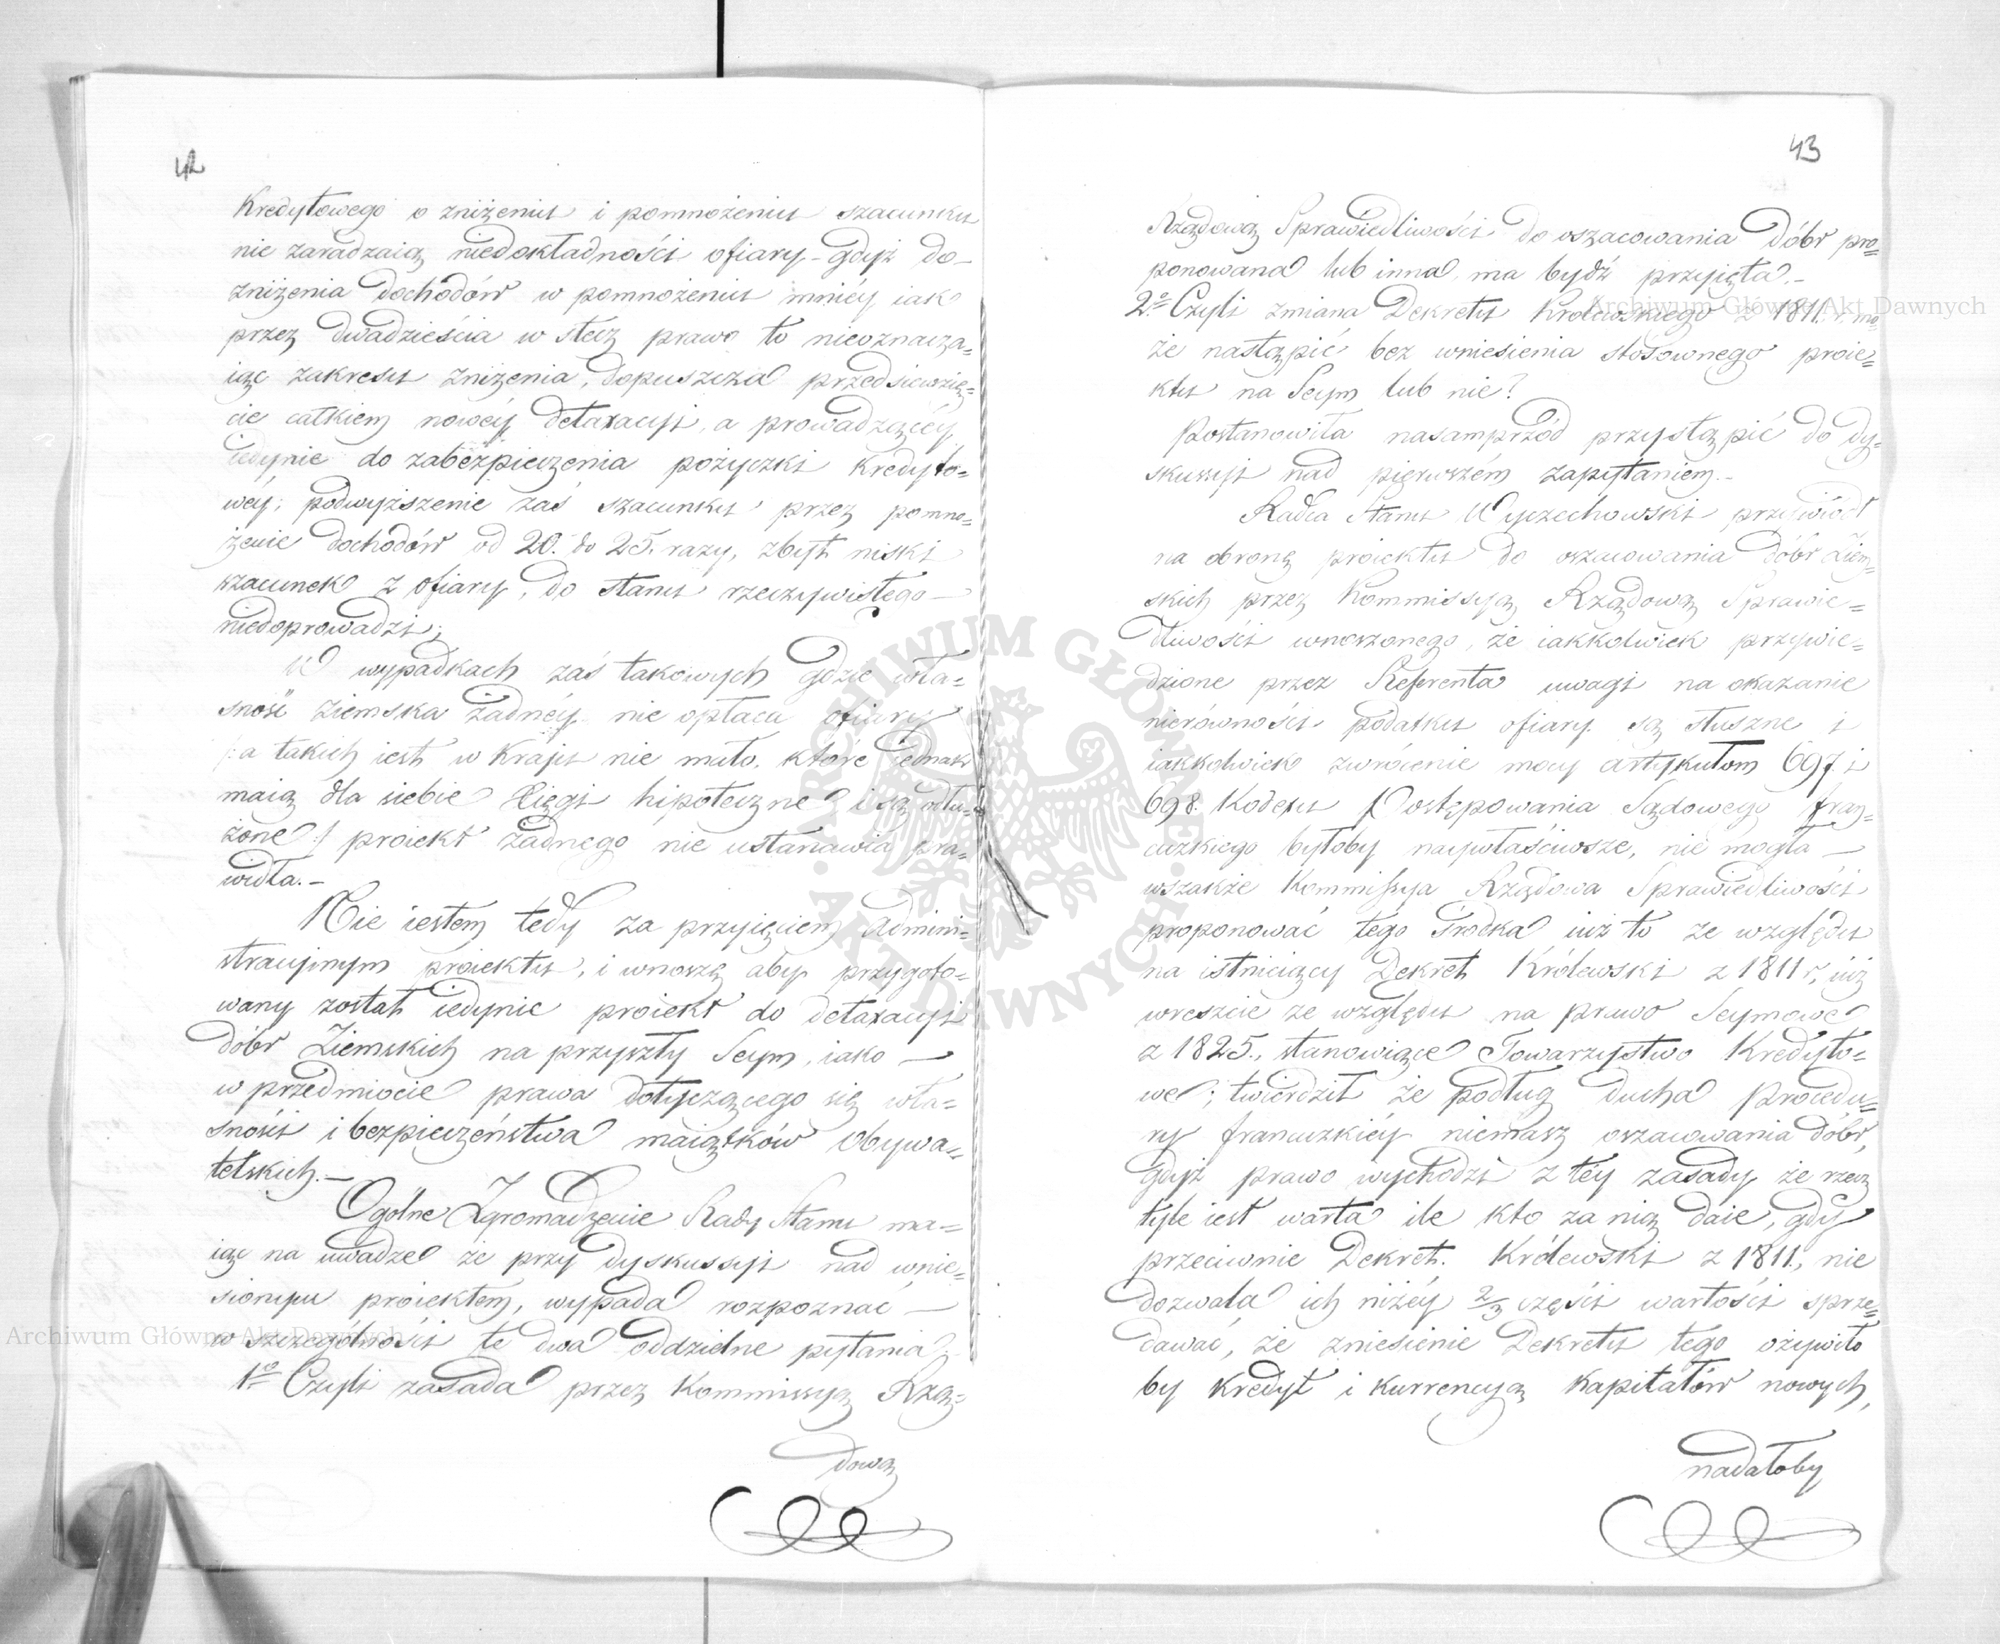 42
Kredytowego o zniżeniu i pomnożeniu szacunku
nie zaradzaią niedokładności ofiary – gdyż do
zniżenia dochodów w pomnożeniu mniéy iak
przez dwadzieścia w stecz prawo to nieoznacza=
iąc zakresu zniżenia, dopuszcza przedsięwzię=
cie całkiem nowéy detaxacyi, a prowadzącéy
iedynie do zabezpieczenia pożyczki Kredyto=
wéy; podwyższenie zaś szacunku przez pomno=
żenie dochodów od 20. do 25. razy, zbyt niski
szacunek z ofiary, do stanu rzeczywistego —
niedoprowadzi;
W wypadkach zaś takowych gdzie wła=
sność ziemska żadnéy nie opłaca ofiary
/: a takich iest w Kraju nie mało, które iednak
maią dla siebie Xięgi hipoteczne i są dłu=
żone :/ proiekt żadnego nie ustanawia pra=
widła. –
Nie iestem tedy za przyięciem Admini=
stracyinym proiektu, i wnoszę aby przygoto=
wany został iedynie proiekt do detaxacyi
dóbr Ziemskich na przyszły Seym, iako —
w przedmiocie prawa dotyczącego się wła=
sności i bezpieczeństwa maiątków Obywa=
telskich. –
Ogólne Zgromadzenie Rady Stanu ma=
iąc na uwadze że przy dyskussyi nad wnie=
sionym proiektem, wypada rozpoznac —
w szczególności te dwa oddzielne pytania
1o Czyli zasada przez Kommissyą Rzą=
dową
43
Rządową Sprawiedliwości do oszacowania dóbr pro=
ponowana lub inna ma bydź przyięta. –
2o Czyli zmiana Dekretu Królewskiego z 1811. r. mo=
że nastąpić bez wniesienia stosownego proie=
ktu na Seym lub nie?
Postanowiła nasamprzód przystąpić do dy=
skussyi nad pierwszém zapytaniem. –
Radca Stanu Wyczechowski przywiódł
na obronę proiektu do oszacowania dóbr Ziem=
skich przez Kommissyą Rządową Sprawie=
dliwości wnoszonego, że iakkolwiek przywie=
dzione przez Referenta uwagi na okazanie
nierówności podatku ofiary są słuszne i
iakkolwiek zwrócenie mocy artykułom 697 i
698. Kodexu Postępowania Sądowego fran=
cuzkiego byłoby naywłaściwsze, nie mogła —
wszakże Kommissya Rządowa Sprawiedliwości
proponować tego środka iuż to ze względu
na istnieiący Dekret Królewski z 1811 r., iuż
wreszcie ze względu na prawo Seymowe
z 1825., stanowiące Towarzystwo Kredyto=
we; twierdził że podług ducha procedu=
ry francuzkiéy niemasz oszacowania dóbr,
gdyż prawo wychodzi z tey zasady że rzecz
tyle iest warta ile kto za nią daie, gdy
przeciwnie Dekret. Królewski z 1811., nie
dozwala ich niżéy 2/3 części wartości sprze=
dawać, że zniesienie Dekretu tego ożywiło
by kredyt i kurrencyą kapitałów nowych,
nadałoby
Archiwum Główne Akt Dawnych
Archiwum Główne Akt Dawnych
ARCHIWUM GŁÓWNE AKT DAWNYCH